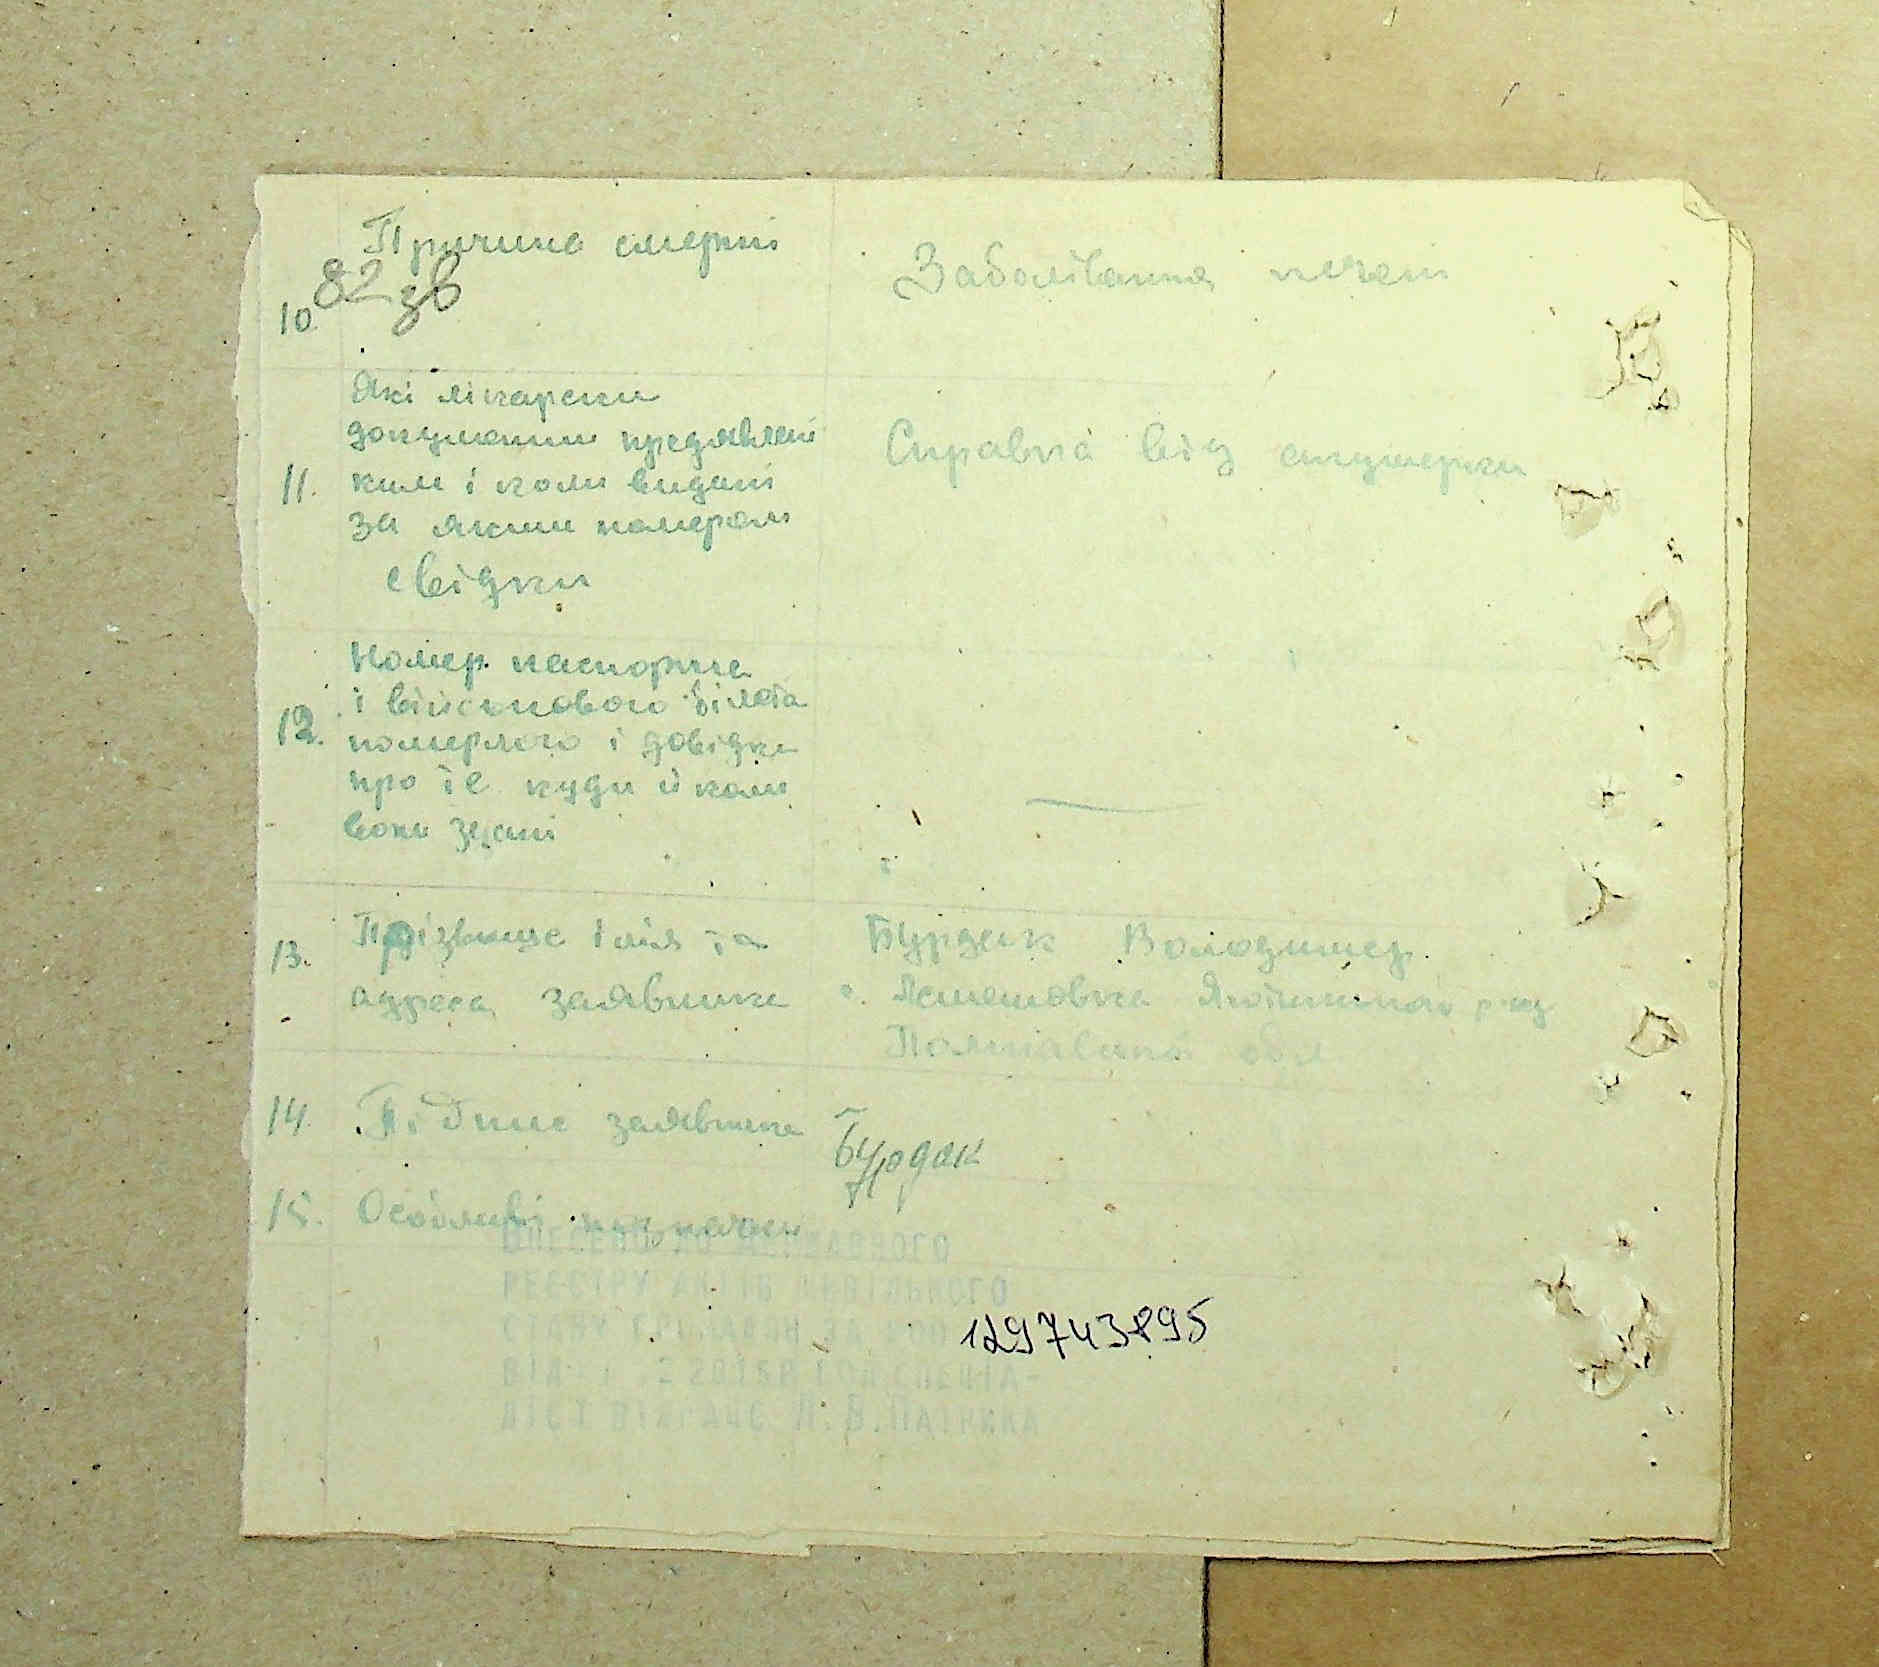 Причина смерти
Заболівання печені
82 зв
10
Які лікарски
документи предявлені
11. ким і коли видані
за яким номером
свідки
Справка від акушерки
Номер паспорта
і військового білета
12. померлого і довідки
про їе куди й коли
вони здані
13. Прізвище імя та
адреса заявника
Бурдак Володимир
Яготинського р-ну
Полтавської обл
14. Підпис заявника
Бурдак
15. Особливі
ВНЕСЕНО ДО ДЕРЖАВНОГО
РЕЄСТРУ АКТІВ ЦИВІЛЬНОГО
СТАНУ ГРОМАДЯН ЗА
129743895
ВІД 2015Р ГОЛ СПЕЦІА-
ЛІСТ ВДРАЦС Л.В.